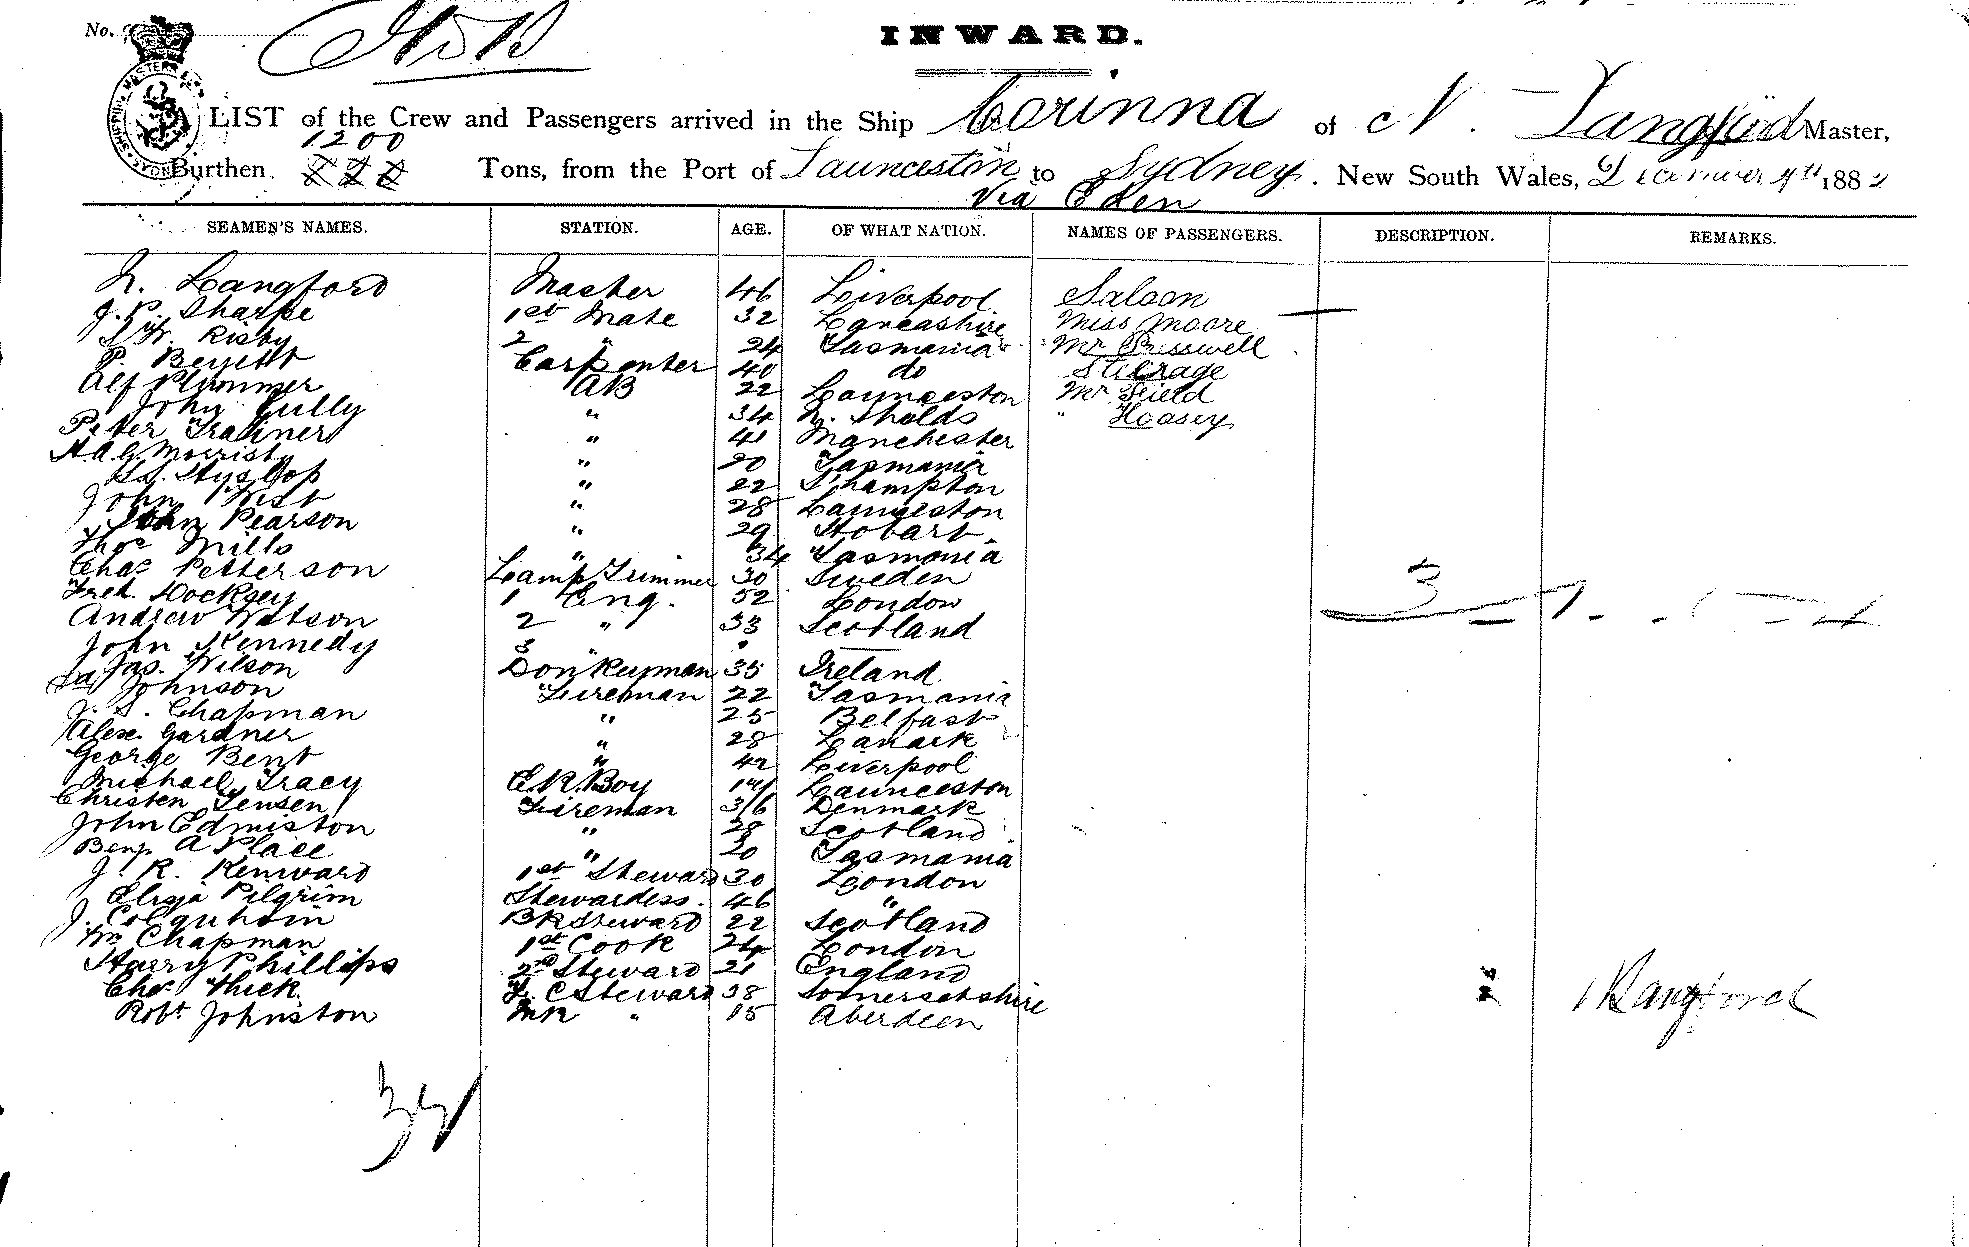 No.
INWARD.
A LIST of the Crew and Passengers arrived in the Ship Corinna of N. Langford Master,
1200
Burthen Tons, from the Port of Launceston to Sydney. New South Wales, December 188
Via Eden
SEAMEN'S NAMES. STATION. AGE. OF WHAT NATION. NAMES OF PASSENGERS. DESCRIPTION. REMARKS.
N. Langford Master 46 Liverpool Saloon
J. P. Sharpe 1st Mate 32 Lancashire Miss Moore
Risby 2 " 24 Tasmania Mr
P. Bennett Carpenter 40 do Steerage
Alf Plummer AB 22 Launceston Mr Field
John Gully " 34 N. Shelds " Hoasey
Peter Tradiner " 41 Manchester
Morrisby " 20 Tasmania
Hyslop " 22 S'hampton
John West " 28 Launceston
John Pearson " 29 Hobart
Thos Mills " 34 Tasmania
Chas Petterson Lamp Trimmer 30 Sweden
Fred. Hocksey 1 Eng. 52 London
Andrew Watson 2 " 33 Scotland
John Kennedy 3 "
Jas. Wilson Donkeyman 35 Ireland
Johnson Fireman 22 Tasmania
J. S. Chapman " 25 Belfast
Alex. Gardner " 28 Lanark
George Bent " 42 Liverpool
Michael Tracy E.R. Boy Launceston
Christen Jensen Fireman 36 Denmark
John Edmiston " 28 Scotland
Benj. A Place " 20 Tasmania
J. R. Kenward 1st Steward 30 London
Eliza Pilgrim Stewardess. 46 "
J. Colquhoin BK Steward 22 Scotland
Wm Chapman 1st Cook 24 London
Harry Phillips 2nd Steward 21 England
Chas. Thick F. C Steward 38 Somersetshire
Robt Johnston MR " 15 Aberdeen
Langford